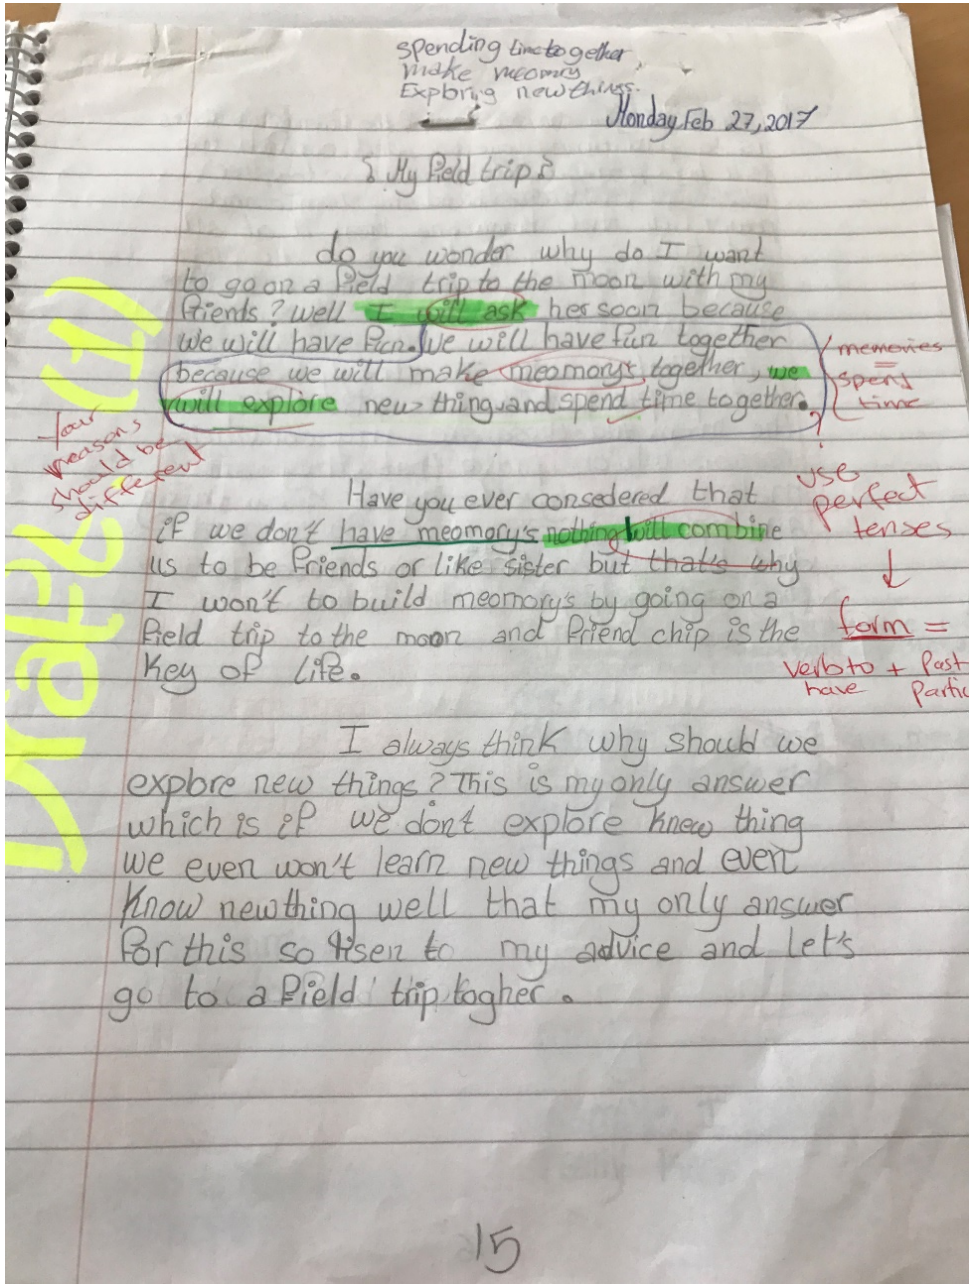 spending time together,
make meomry
Exploring new things.
Monday, Feb 27, 2017
My field trip
do you wonder why do I want
to go on a field trip to the moon with my
friends? well I will ask her soon because
we will have fun. We will have fun together
because we will make meomory's together, we
will explore new thing and spend time together.
memories
=
spend
time
?
your
reasons
should be
different
Draft (1)
Have you ever consedered that
if we don't have meomory's nothing will combine
us to be friends or like sister but that's why
I won't to build meomory's by going on a
field trip to the moon and friend chip is the
key of life.
use
perfect
tenses
↓
form =
verb to + Past
have Partic
I always think why should we
explore new things? This is my only answer
which is if we don't explore knew thing
we even won't learn new things and even
know new thing well that my only answer
for this so lisen to my advice and let's
go to a field trip togher.
15